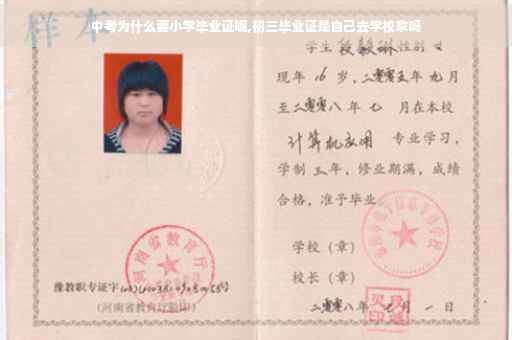 中考为什么要小学毕业证呢,初三毕业证是自己去学校拿吗
样本
学生 段毅琳 性别 女
现年 16 岁，二零零五年 九月
至二零零八年 七 月在本校
计算机应用 专业学习，
学制 三 年，修业期满，成绩
合格，准予毕业。
学校（章）
校长（章）
二零零八年 七 月 一 日
河南省教育厅
豫教职专证字
(河南省教育厅验印)